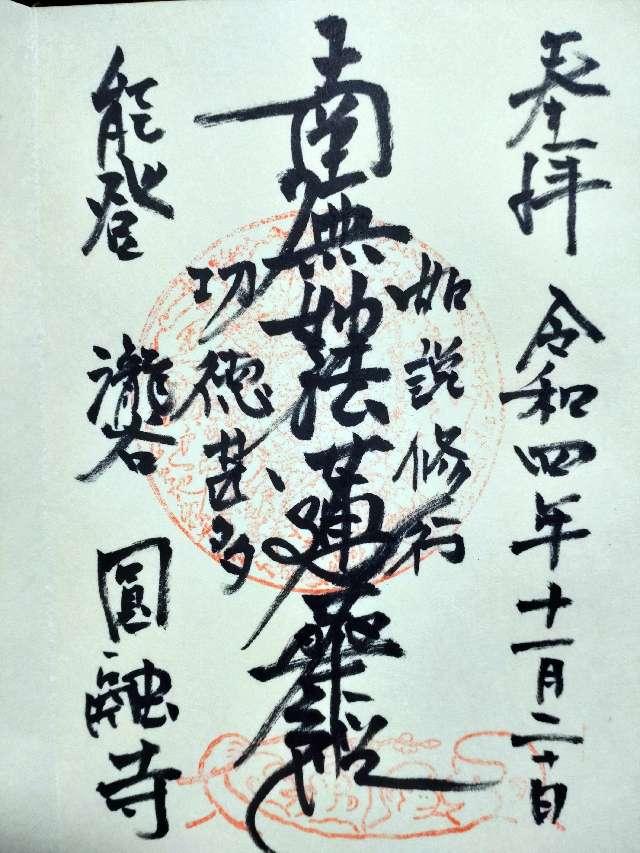 奉拝 令和四年十一月二十日
如説修行
南無妙法蓮華経
功徳甚多
能登 瀧谷 圓融寺